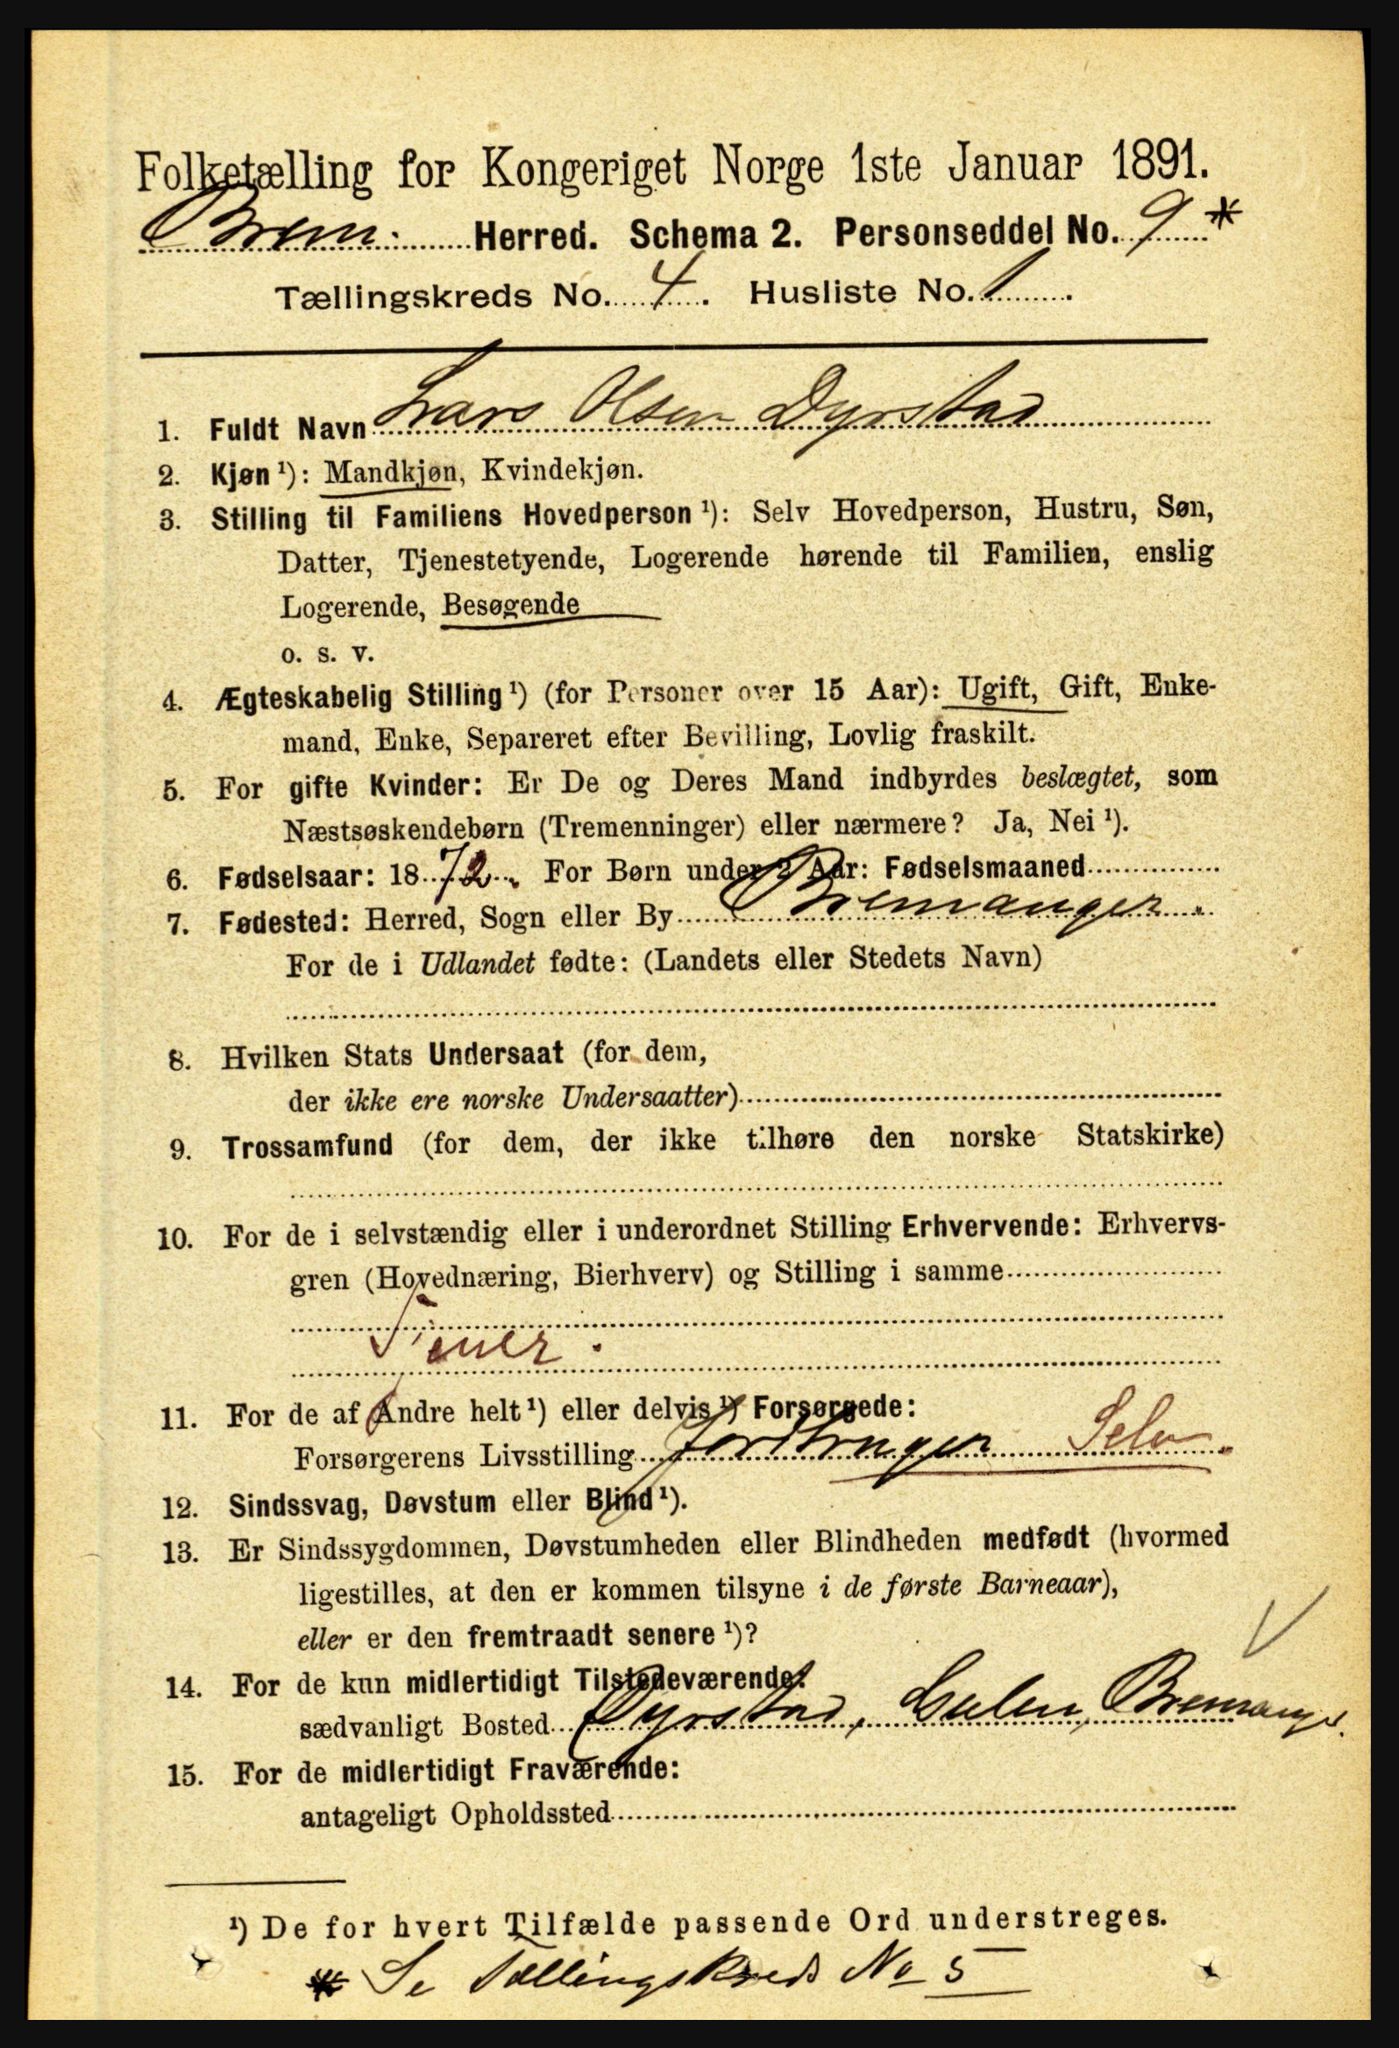 Folketælling for Kongeriget Norge 1ste Januar 1891.
Brem. Herred. Schema 2. Personseddel No. 9 *
Tællingskreds No. 4. Husliste No. 1.
1. Fuldt Navn Lars Olsen Dyrstad
2. Kjøn ¹): Mandkjøn, Kvindekjøn.
3. Stilling til Familiens Hovedperson ¹): Selv Hovedperson, Hustru, Søn,
Datter, Tjenestetyende, Logerende hørende til Familien, enslig
Logerende, Besøgende
o. s. v.
4. Ægteskabelig Stilling ¹) (for Personer over 15 Aar): Ugift, Gift, Enke-
mand, Enke, Separeret efter Bevilling, Lovlig fraskilt.
5. For gifte Kvinder: Er De og Deres Mand indbyrdes beslægtet, som
Næstsøskendebørn (Tremenninger) eller nærmere? Ja, Nei ¹).
6. Fødselsaar: 1872. For Børn under 2 Aar: Fødselsmaaned
7. Fødested: Herred, Sogn eller By Bremanger.
For de i Udlandet fødte: (Landets eller Stedets Navn)
8. Hvilken Stats Undersaat (for dem,
der ikke ere norske Undersaatter)
9. Trossamfund (for dem, der ikke tilhøre den norske Statskirke)
10. For de i selvstændig eller i underordnet Stilling Erhvervende: Erhvervs-
gren (Hovednæring, Bierhverv) og Stilling i samme
11. For de af Andre helt ¹) eller delvis ¹) Forsørgede:
Forsørgerens Livsstilling Jordbruger Selv.
12. Sindssvag, Døvstum eller Blind ¹).
13. Er Sindssygdommen, Døvstumheden eller Blindheden medfødt (hvormed
ligestilles, at den er kommen tilsyne i de første Barneaar),
eller er den fremtraadt senere ¹)?
14. For de kun midlertidigt Tilstedeværende:
sædvanligt Bosted Dyrstad, Bremanger.
15. For de midlertidigt Fraværende:
antageligt Opholdssted
¹) De for hvert Tilfælde passende Ord understreges.
* Se Tællingskreds No 5